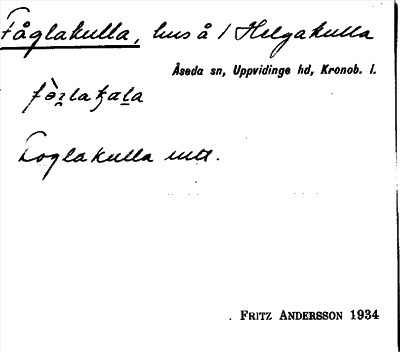 Fåglakulla, hus å 1 Helgakulla
Åseda sn, Uppvidinge hd, Kronob. l.
Foglakulla utt.
FRITZ ANDERSSON 1934